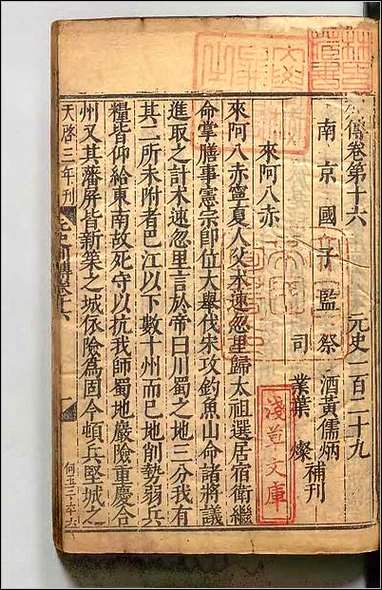 列傳卷第十六
元史一百二十九
南京國子監祭酒黃儒炳補刊
司業葉燦
來阿八赤
來阿八赤寧夏人父朮速忽里歸太祖選居宿衛繼
命掌膳事憲宗即位大舉伐宋攻釣魚山命諸將議
進取之計朮速忽里言於帝曰川蜀之地三分我有
其二所未附者巴江以下數十州而已地削勢弱兵
糧皆仰給東南故死守以抗我師蜀地巖險重慶合
州又其藩屏皆新築之城依險為固今頓兵堅城之
天啓三年刊
淺草文庫